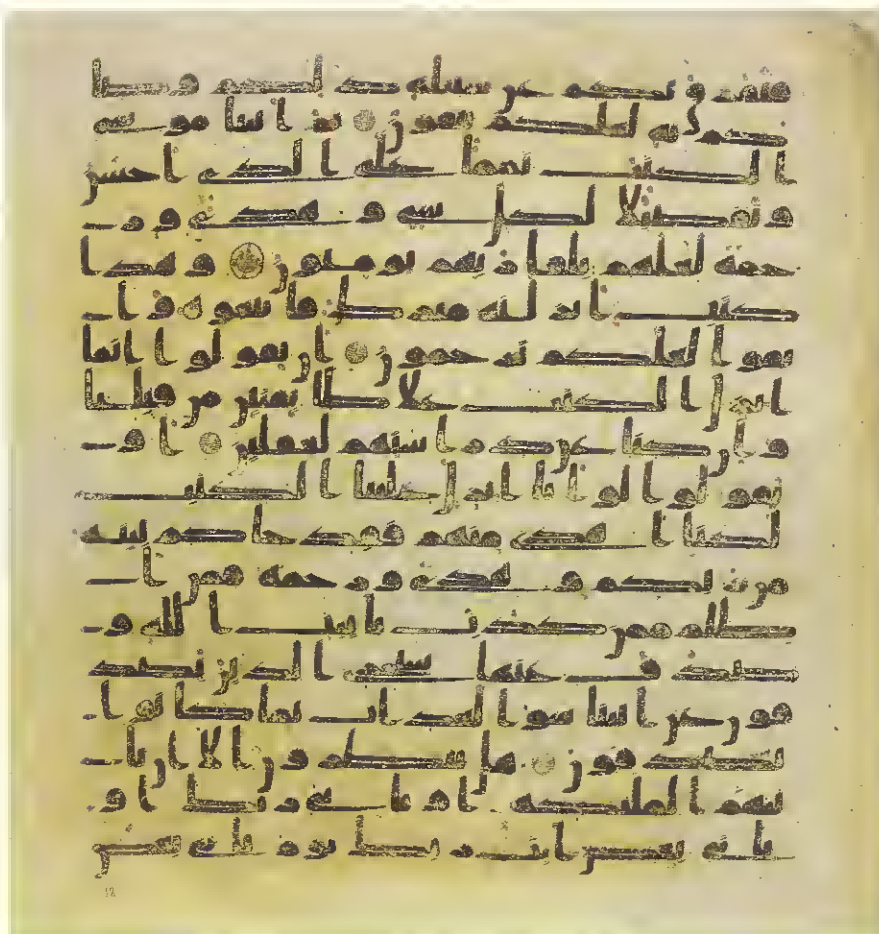 فتفرق بكم عن سبيله ذلكم وصا
كم به لعلكم تتقون ثم اتينا موسى
الكتب تماما على الذى احسن
وتفصيلا لكل شى وهدى ور
حمة لعلهم بلقا ربهم يومنون وهذا
كتب انزلنه مبرك فاتبعوه وا
تقوا لعلكم ترحمون ان تقولوا انما
انزل الكتب على طايفتين من قبلنا
وان كنا عن دراستهم لغفلين او
تقولوا لو انا انزل علينا الكتب
لكنا اهدى منهم فقد جاكم بينة
من ربكم وهدى ورحمة فمن ا
ظلم ممن كذب بايت الله و
صدف عنها سنجزى الذين يصد
فون عن ايتنا سو العذاب بما كانوا
يصدفون هل ينظرون الا ان تا
تيهم الملئكة او ياتى ربك او
ياتى بعض ايت ربك يوم ياتى بعض
12